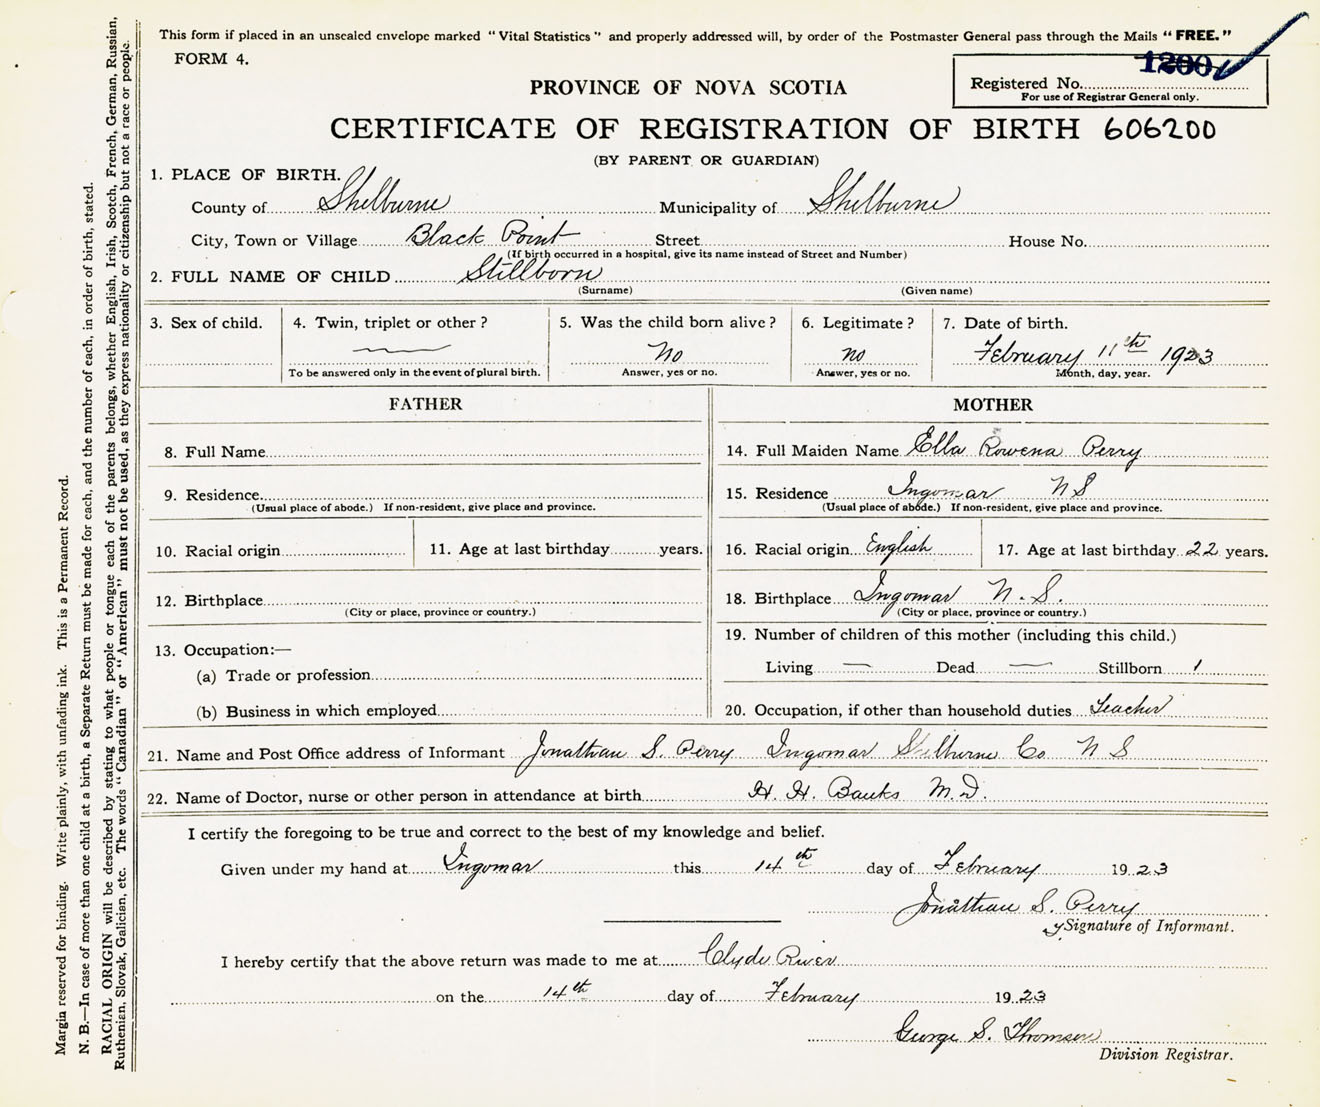 This form if placed in an unsealed envelope marked "Vital Statistics" and properly addressed will, by order of the Postmaster General pass through the Mails "FREE."
FORM 4.
1200
Registered No.
For use of Registrar General only.
PROVINCE OF NOVA SCOTIA
CERTIFICATE OF REGISTRATION OF BIRTH 606200
(BY PARENT OR GUARDIAN)
1. PLACE OF BIRTH.
County of Shelburne Municipality of Shelburne
City, Town or Village Black Point Street House No.
(If birth occurred in a hospital, give its name instead of Street and Number)
2. FULL NAME OF CHILD Stillborn
(Surname) (Given name)
3. Sex of child. 4. Twin, triplet or other? 5. Was the child born alive? 6. Legitimate? 7. Date of birth.
No no February 11th 1923
To be answered only in the event of plural birth. Answer, yes or no. Answer, yes or no. Month, day, year.
FATHER
8. Full Name
9. Residence
(Usual place of abode.) If non-resident, give place and province.
10. Racial origin 11. Age at last birthday years.
12. Birthplace
(City or place, province or country.)
13. Occupation:—
(a) Trade or profession
(b) Business in which employed
MOTHER
14. Full Maiden Name Ella Rowena Perry
15. Residence Ingomar N S
(Usual place of abode.) If non-resident, give place and province.
16. Racial origin English 17. Age at last birthday 22 years.
18. Birthplace Ingomar N. S.
(City or place, province or country.)
19. Number of children of this mother (including this child.)
Living — Dead — Stillborn 1
20. Occupation, if other than household duties Teacher
21. Name and Post Office address of Informant Jonathan S. Perry Ingomar Shelburne Co N S
22. Name of Doctor, nurse or other person in attendance at birth H. H. Banks M.D.
I certify the foregoing to be true and correct to the best of my knowledge and belief.
Given under my hand at Ingomar this 14th day of February 1923
Jonathan S. Perry
Signature of Informant.
I hereby certify that the above return was made to me at Clyde River
on the 14th day of February 1923
George S. Thomson
Division Registrar.
Margin reserved for binding. Write plainly, with unfading ink. This is a Permanent Record.
N. B.—In case of more than one child at a birth, a Separate Return must be made for each, and the number of each, in order of birth, stated.
RACIAL ORIGIN will be described by stating to what people or tongue each of the parents belongs, whether English, Irish, Scotch, French, German, Russian,
Ruthenian, Slovak, Galician, etc. The words "Canadian" or "American" must not be used, as they express nationality or citizenship but not a race or people.